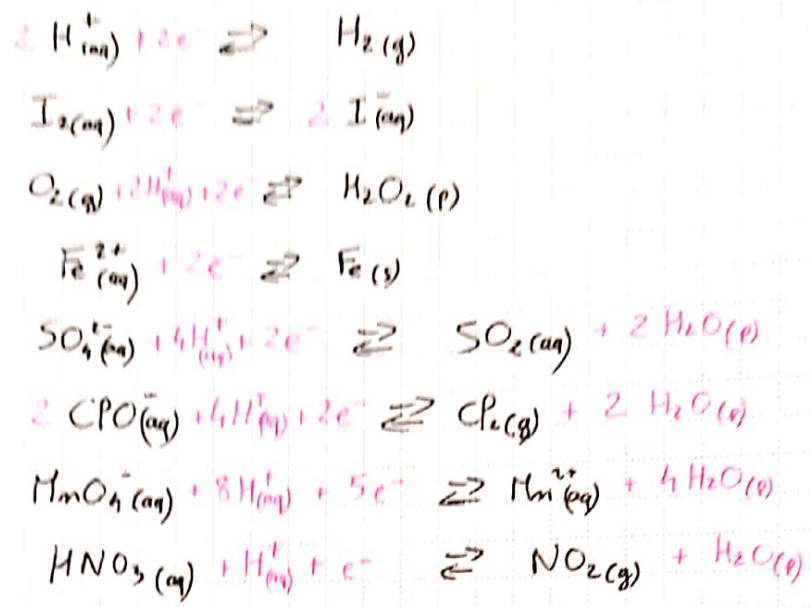 2 H⁺(aq) + 2e⁻ ⇌ H₂(g)
I₂(aq) + 2e⁻ ⇌ 2 I⁻(aq)
O₂(g) + 2H⁺(aq) + 2e⁻ ⇌ H₂O₂(ℓ)
Fe²⁺(aq) + 2e⁻ ⇌ Fe(s)
SO₄²⁻(aq) + 4H⁺(aq) + 2e⁻ ⇌ SO₂(aq) + 2 H₂O(ℓ)
2 CℓO⁻(aq) + 4H⁺(aq) + 2e⁻ ⇌ Cℓ₂(g) + 2 H₂O(ℓ)
MnO₄⁻(aq) + 8H⁺(aq) + 5e⁻ ⇌ Mn²⁺(aq) + 4H₂O(ℓ)
HNO₃(aq) + H⁺(aq) + e⁻ ⇌ NO₂(g) + H₂O(ℓ)